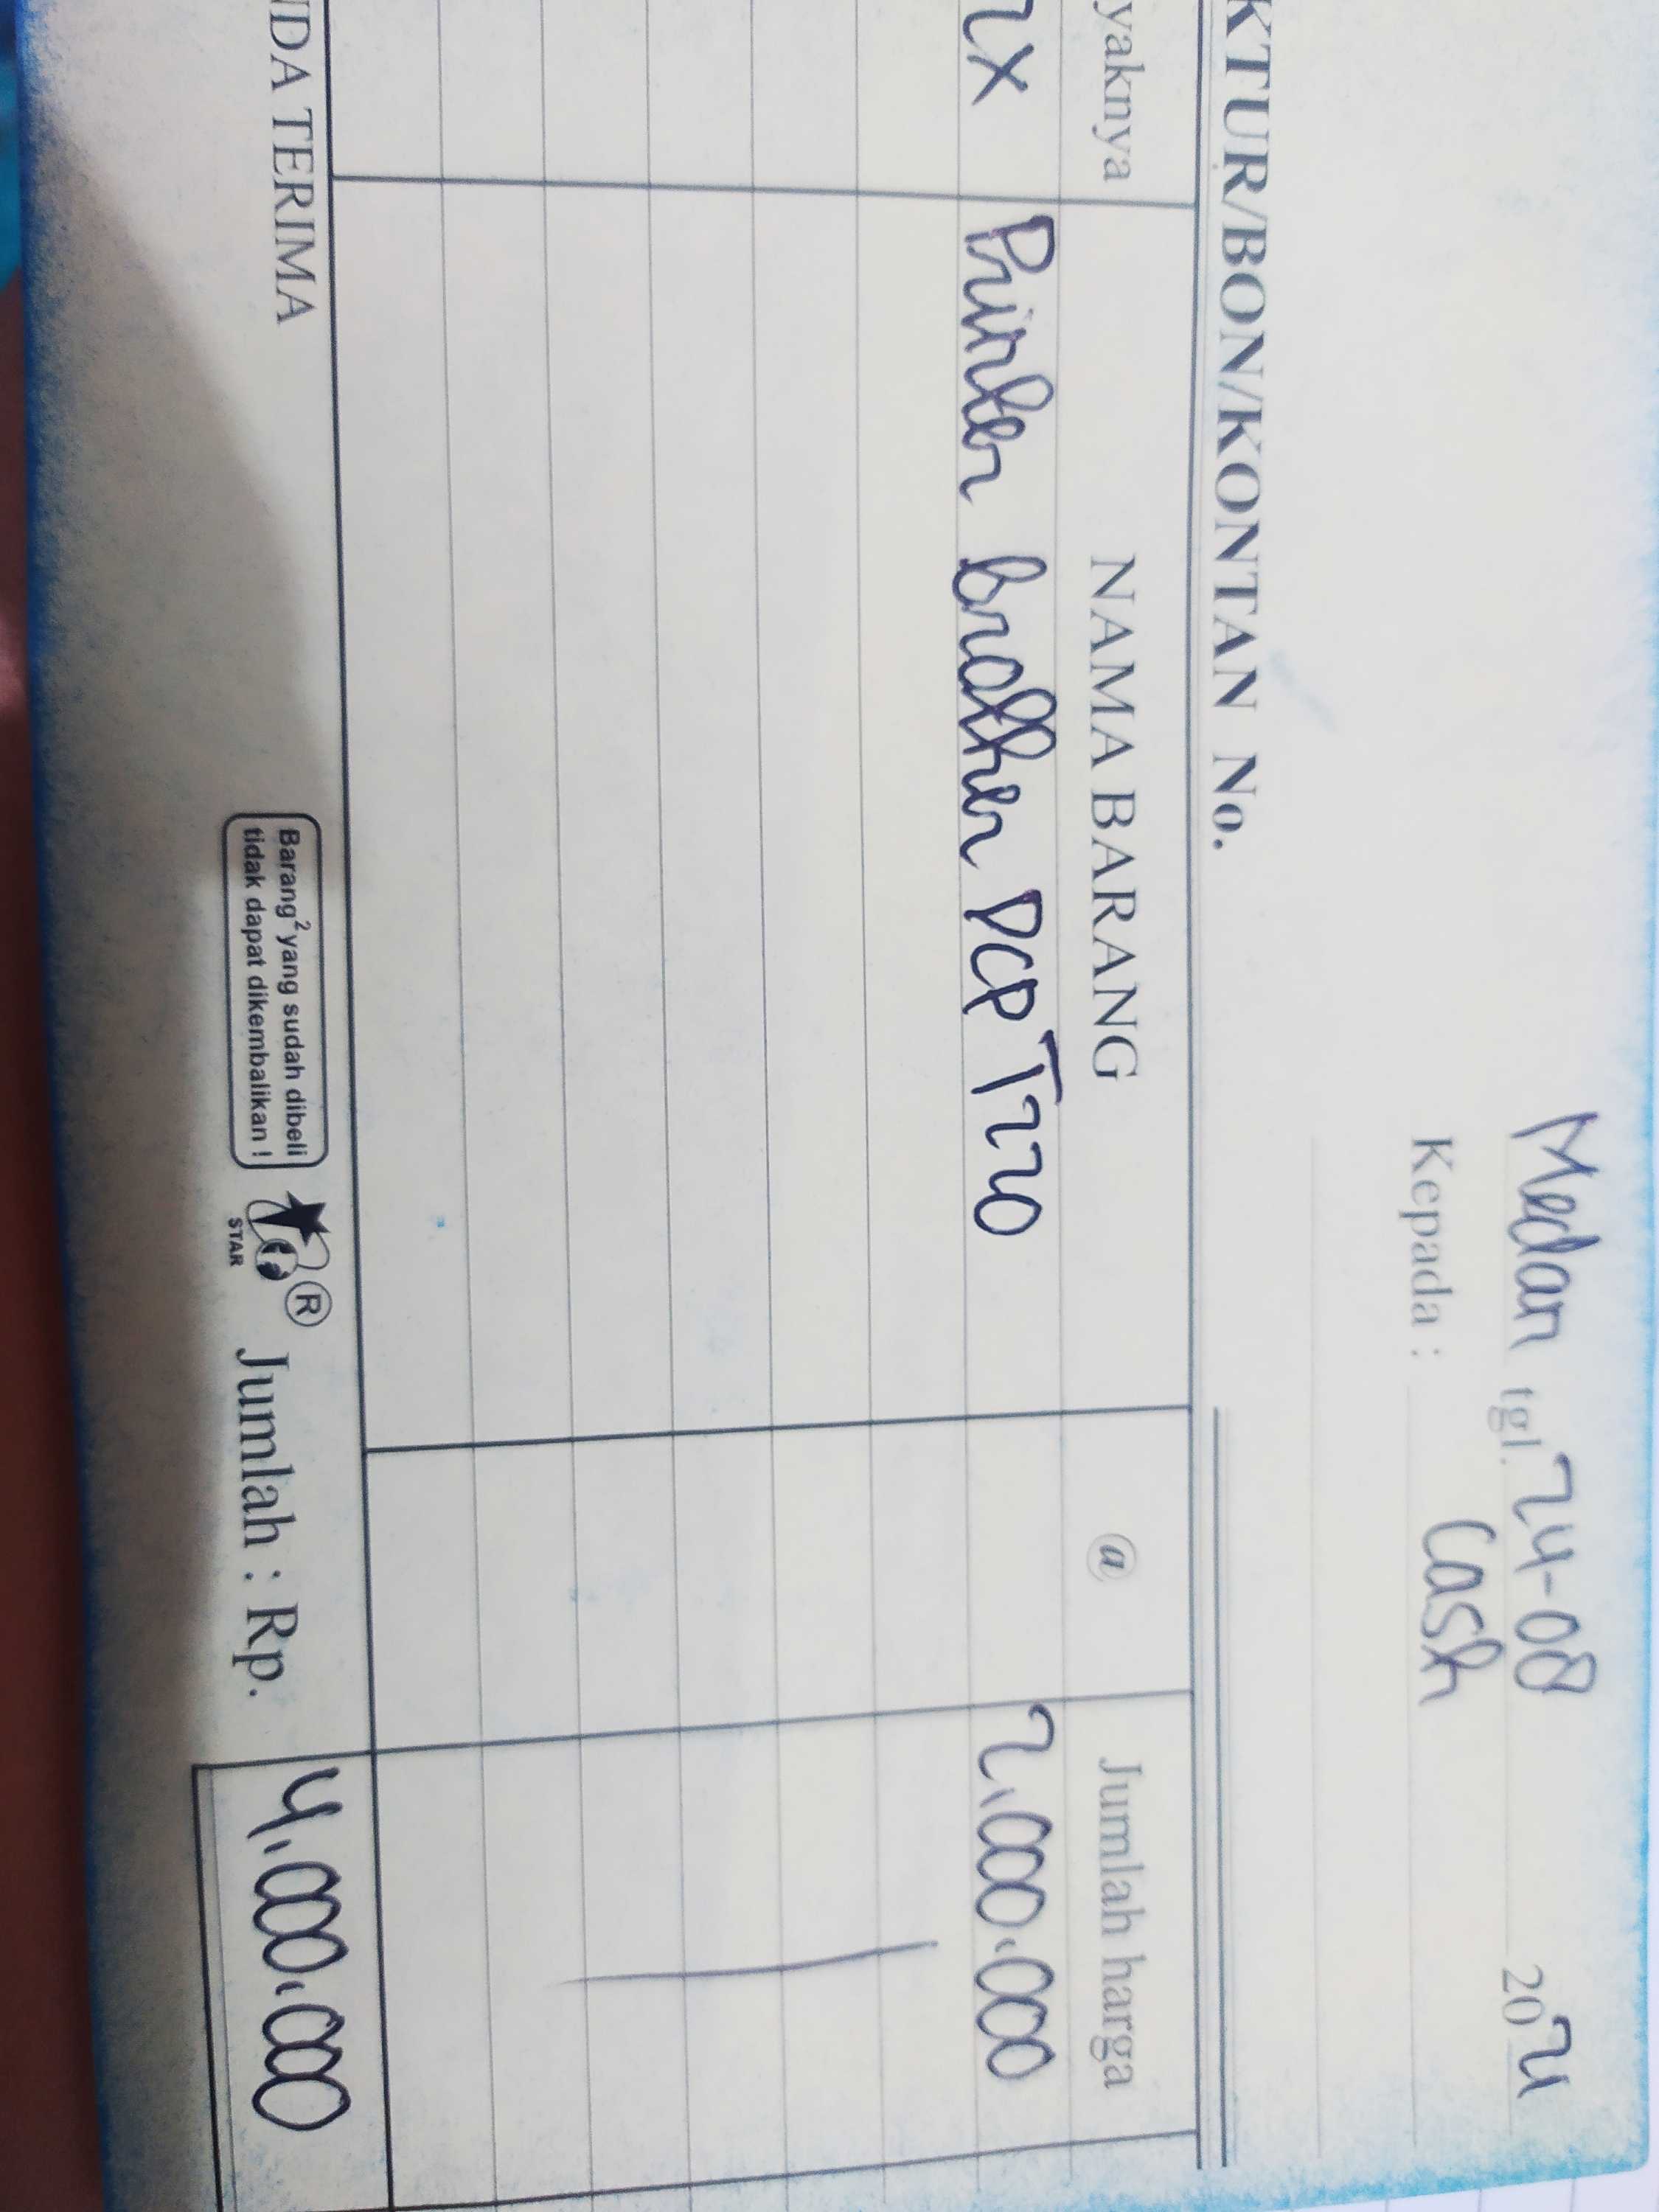 Medan tgl. 24-08 20
Kepada : Cash
KTUR/BON/KONTAN No.
yaknya NAMA BARANG @ Jumlah harga
2X Printer brother DCP T220 2.000.000
NDA TERIMA
Barang² yang sudah dibeli
tidak dapat dikembalikan !
STAR
Jumlah : Rp. 4.000.000